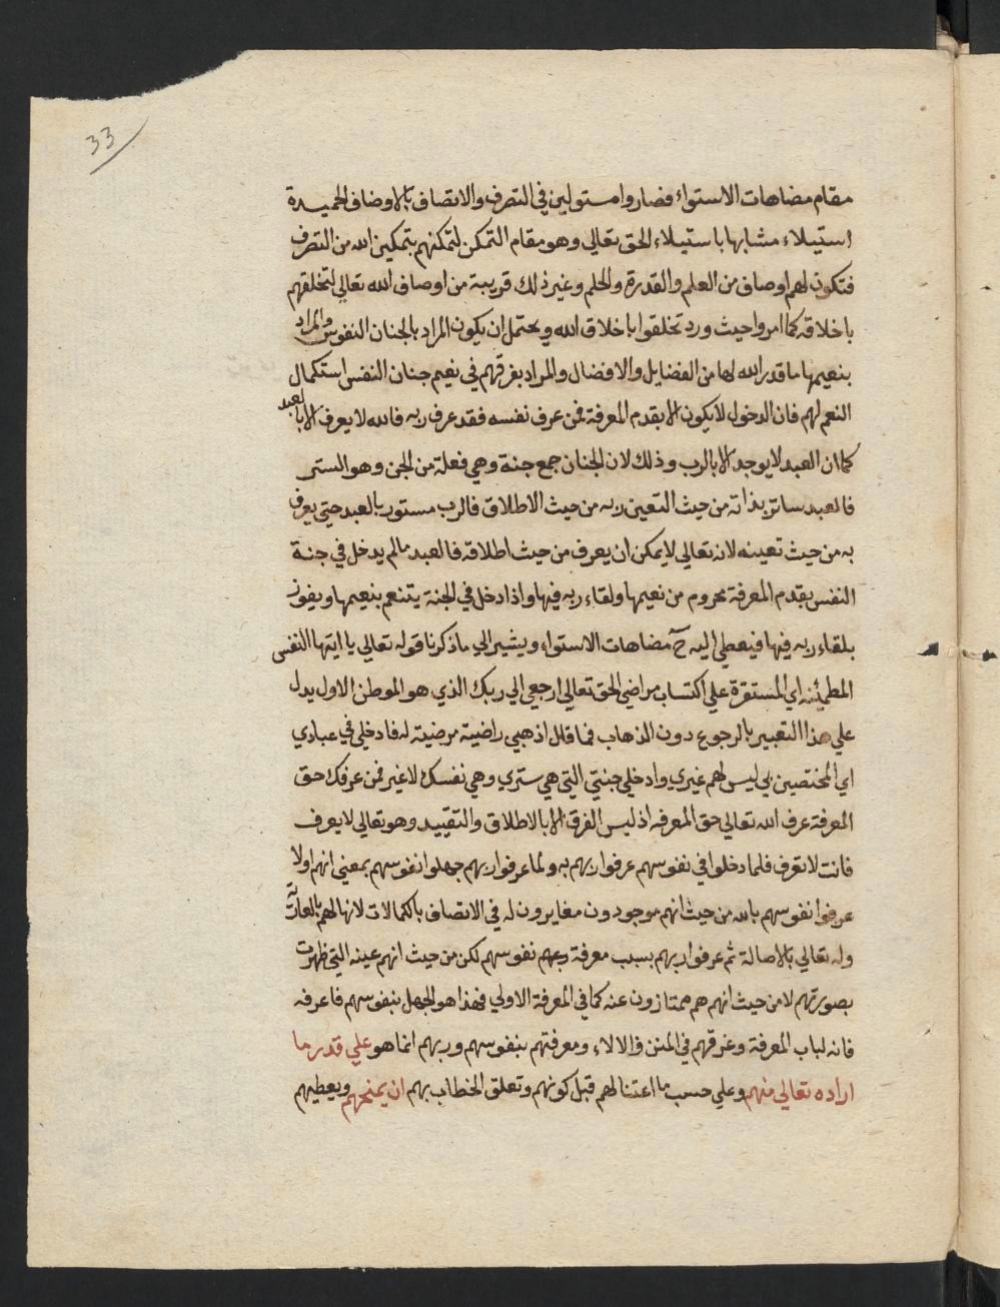 33
مقام مضاهات الاستواء فصاروا مستولين في التصرف والاتصاف بالاوصاف الحميدة
استيلاء مشابها باستيلاء الحق تعالي وهو مقام التمكن لتمكنهم بتمكين الله من التصرف
فتكون لهم اوصاف من العلم والقدرة والحلم وغير ذلك قريبة من اوصاف الله تعالي لتخلقهم
باخلاقه كما امروا حيث ورد تخلقوا باخلاق الله ويحتمل ان يكون المراد بالجنان النفوس والمراد
بنعيمها ما قدر الله لها من الفضايل والافضال والمراد بغرقهم في نعيم جنان النفس استكمال
النعم لهم فان الدخول لا يكون الا بقدم المعرفة فمن عرف نفسه فقد عرف ربه فالله لا يعرف الا بالعبد
كما ان العبد لا يوجد الا بالرب وذلك لان الجنان جمع جنة وهي فعلة من الجن وهو الستر
فالعبد ساتر بذاته من حيث التعين ربه من حيث الاطلاق فالرب مستور بالعبد حتي يعرف
به من حيث تعينه لانه تعالي لا يمكن ان يعرف من حيث اطلاقه فالعبد مالم يدخل في جنة
النفس بقدم المعرفة محروم من نعيمها ولقاء ربه فيها واذا دخل في الجنة يتنعم بنعيمها ويفوز
بلقاء ربه فيها فيعطي اليه ح مضاهات الاستواء ويشير الي ما ذكرنا قوله تعالي يا ايتها النفس
المطمئنه اي المستقرة علي اكتساب مراضي الحق تعالي ارجعي الي ربك الذي هو الموطن الاول يدل
علي هذا التعبير بالرجوع دون الذهاب فما قال اذهبي راضية مرضية له فادخلي في عبادي
اي المختصين بي ليس لهم غيري وادخلي جنتي التي هي ستري وهي نفسك لا غير فمن عرفك حق
المعرفة عرف الله تعالي حق المعرفه اذ ليس الفرق الا بالاطلاق والتقييد وهو تعالي لا يعرف
فانت لا تعرف فلما دخلوا في نفوسهم عرفوا ربهم به ولما عرفوا ربهم جهلوا نفوسهم بمعني انهم اولا
عرفوا نفوسهم بالله من حيث انهم موجودون مغايرون له في الاتصاف بالكمالات لانها لهم بالعارية
وله تعالي بالاصالة ثم عرفوا ربهم بسبب معرفة ربهم نفوسهم لكن من حيث انهم عينه التي ظهرت
بصورتهم لا من حيث انهم هم ممتازون عنه كما في المعرفة الاولي فهذا هو الجهل بنفوسهم فاعرفه
فانه لباب المعرفة وغرقهم في المنن والالاء ومعرفتهم بنفوسهم وربهم انما هو علي قدر ما
اراده تعالي منهم وعلي حسب ما اعتنا لهم قبل كونهم وتعلق الخطاب بهم ان يمنحهم ويعطيهم